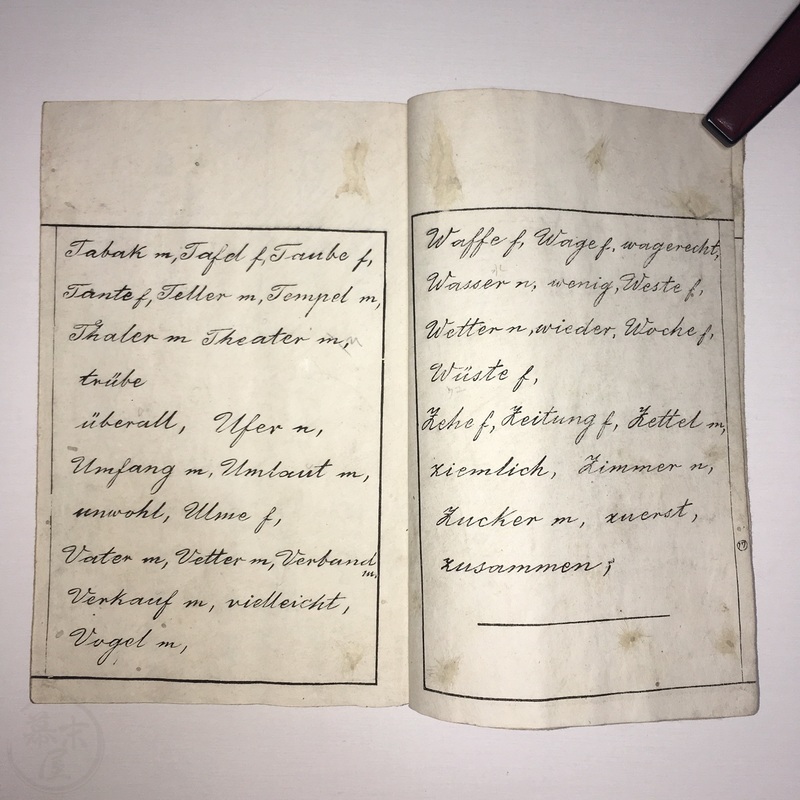 Tabak m, Tafel f, Taube f,
Tante f, Teller m, Tempel m,
Thaler m Theater m,
trübe
überall, Ufer n,
Umfang m, Umlaut m,
unwohl, Ulme f,
Vater m, Vetter m, Verband
m,
Verkauf m, vielleicht,
Vogel m,
Waffe f, Wage f, wagerecht,
Wasser n, wenig, Weste f,
Wetter n, wieder, Woche f,
Wüste f,
Zehe f, Zeitung f, Zettel m,
ziemlich, Zimmer n,
Zucker m, zuerst,
zusammen;
幕末屋